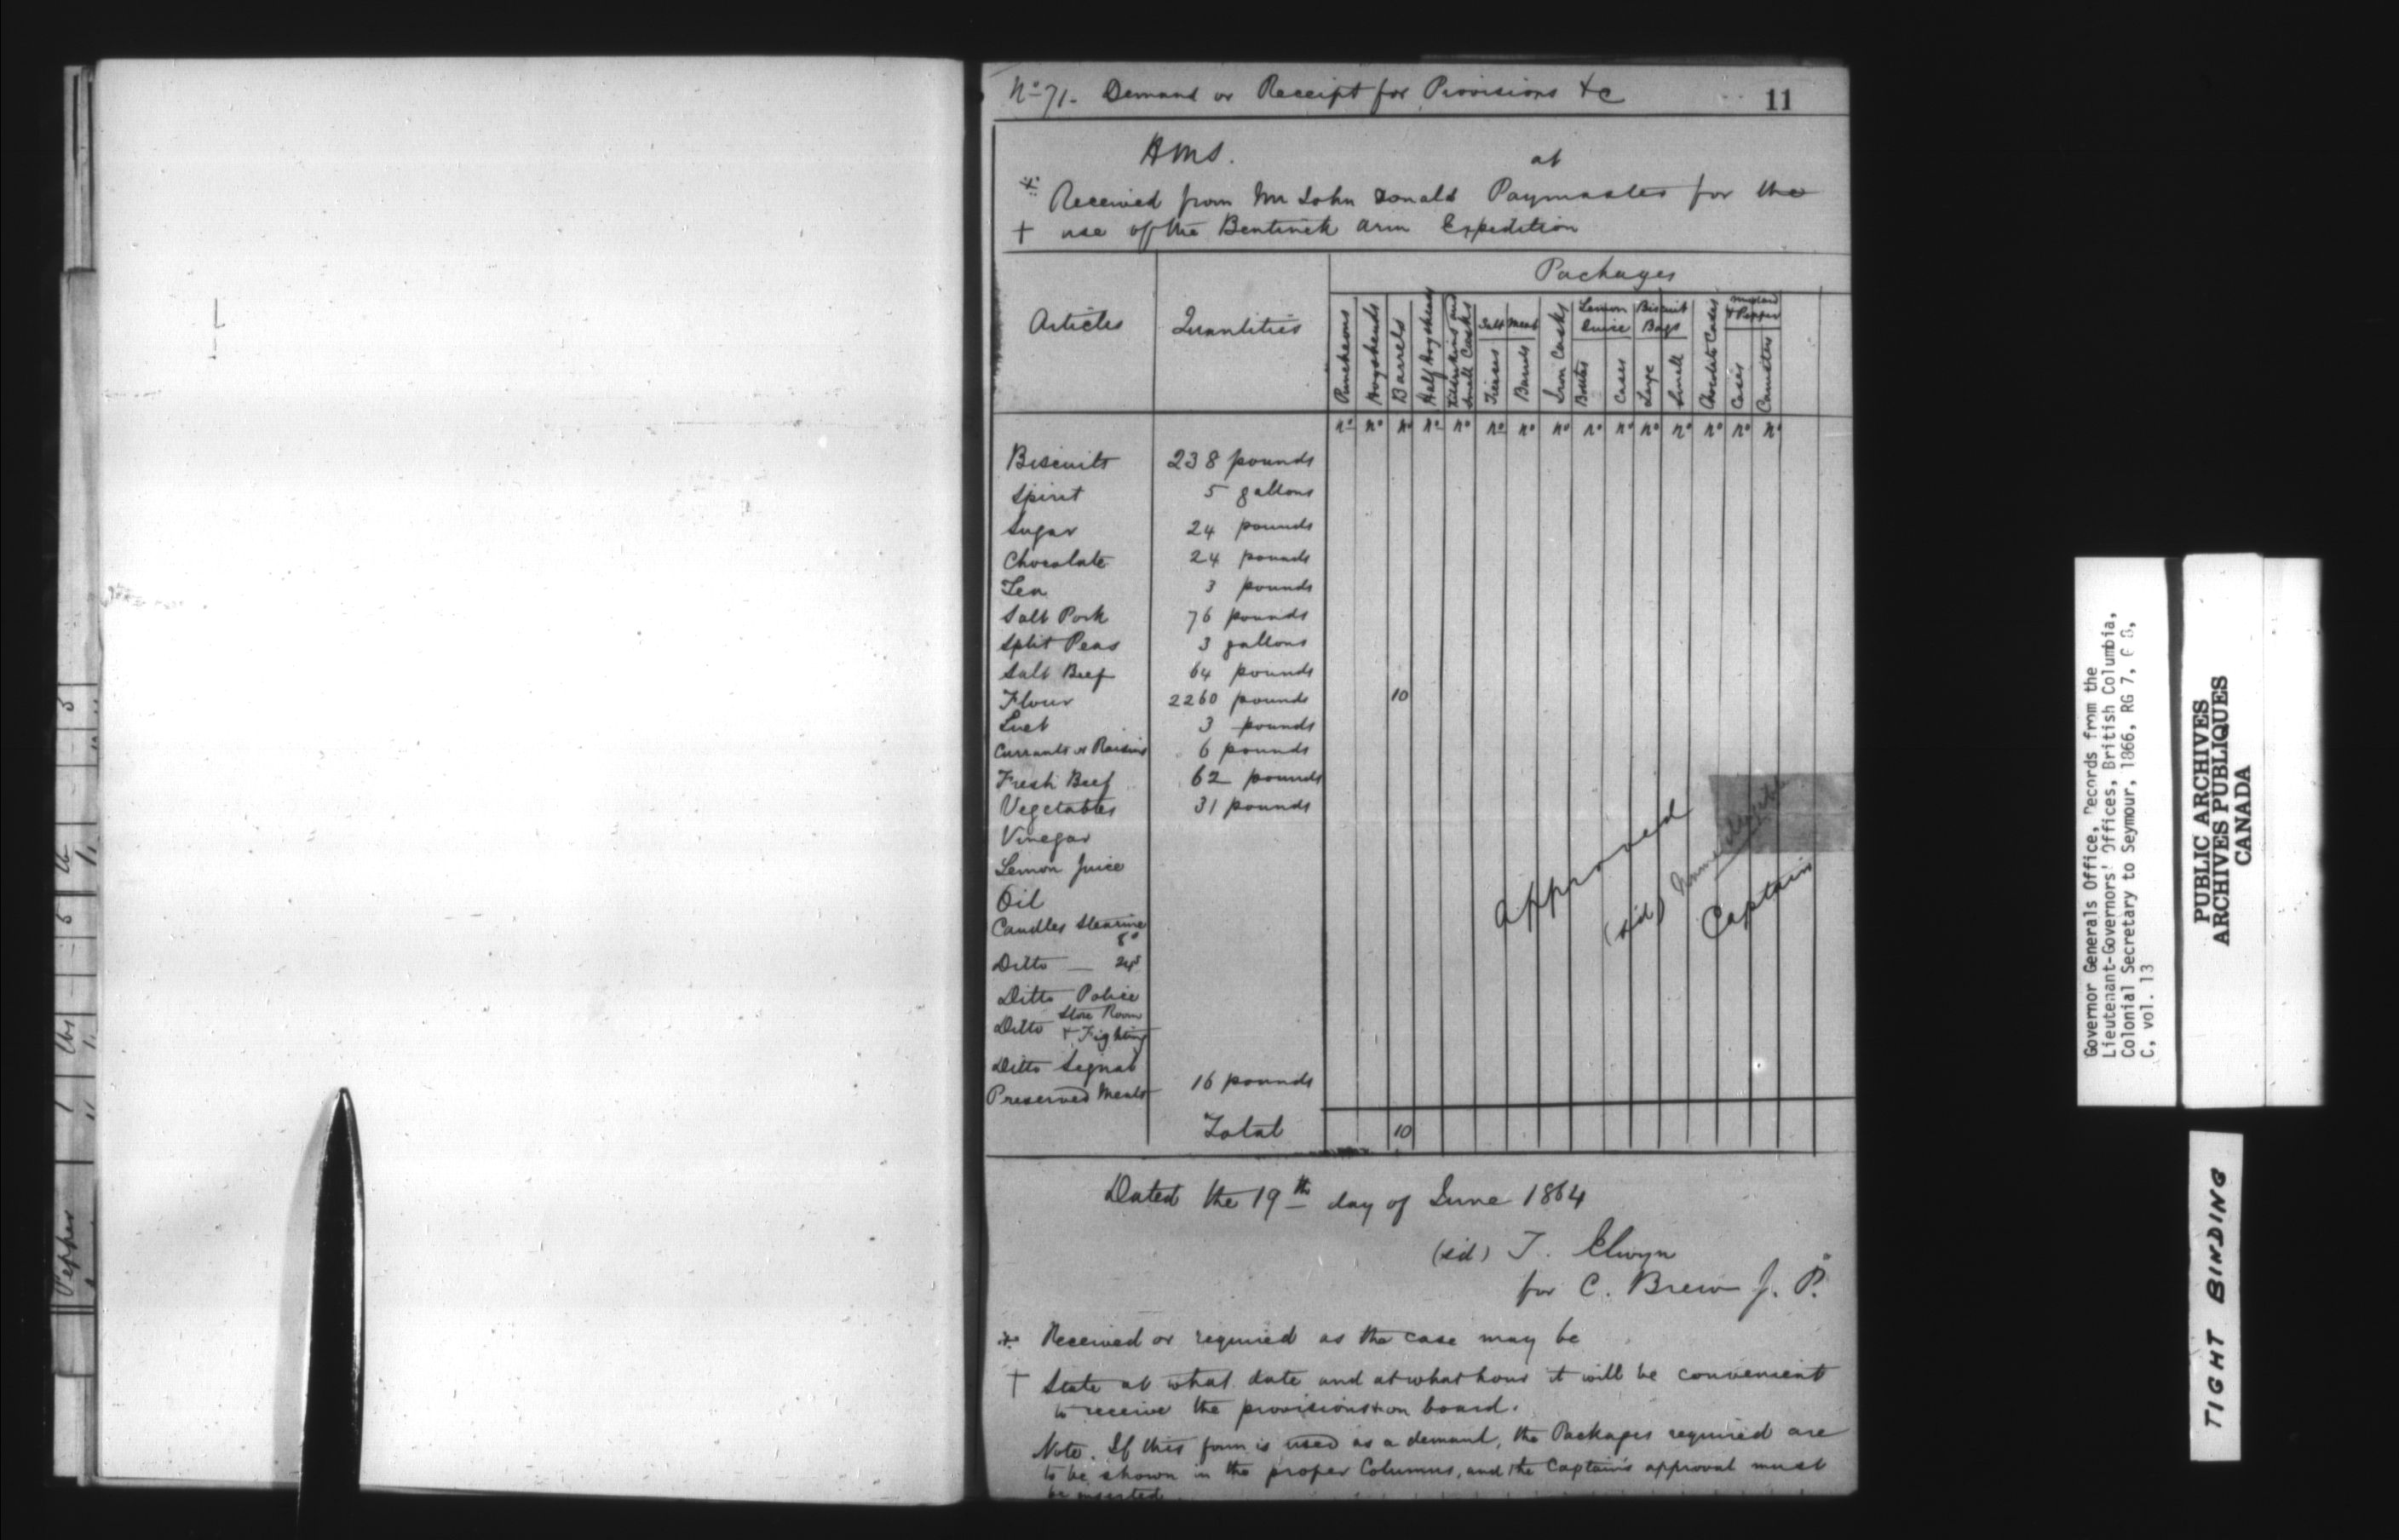 No 71- Demand or Receipt for Provisions &c
11
HMS. at
* Received from Mr John Donald Paymaster for the
+ use of the Bentinck Arm Expedition
Articles
Quantities
Packages
Puncheons
Hogsheads
Barrels
Half Hogsheads
Kilderkins and Small Casks
Salt Meat
Tierces
Barrels
Iron Casks
Lemon Juice
Bottles
Cases
Biscuit Bags
Large
Small
Chocolate Cases
Mustard & Pepper
Cases
Canisters
No No No No No No No No No No No No No No No
Biscuits 238 pounds
Spirit 5 gallons
Sugar 24 pounds
Chocolate 24 pounds
Tea 3 pounds
Salt Pork 76 pounds
Split Peas 3 gallons
Salt Beef 64 pounds
Flour 2260 pounds 10
Suet 3 pounds
Currants or Raisins 6 pounds
Fresh Beef 62 pounds
Vegetables 31 pounds
Vinegar
Lemon Juice
Oil
Candles Stearine
8s
Ditto — 24s
Ditto Police
Ditto Store Room
& Fighting
Ditto Signal
Preserved Meats 16 pounds
Total 10
Approved
(sd) Name illegible
Captain
Dated the 19th day of June 1864
(sd) T. Elwyn
for C. Brew J. P.
* Received or required as the case may be
† State at what date and at what hour it will be convenient
to receive the provisions &c on board.
Note. If this form is used as a demand, the Packages required are
to be shown in the proper Columns, and the Captain's approval must
be inserted
Pepper 1 lbs
Governor Generals Office, Records from the
Lieutenant-Governors' Offices, British Columbia,
Colonial Secretary to Seymour, 1866, RG 7, G 8,
C, vol. 13
PUBLIC ARCHIVES
ARCHIVES PUBLIQUES
CANADA
TIGHT BINDING